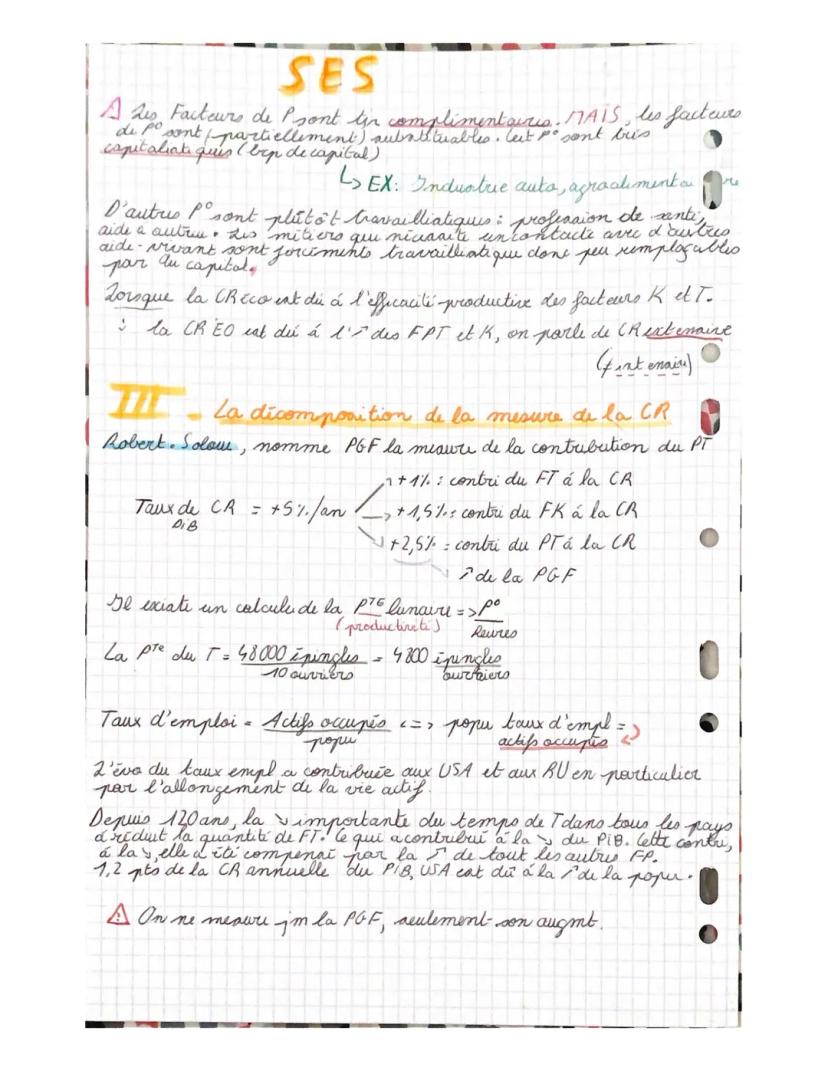 SES
⚠ Les Facteurs de P° sont tjr complimentaires. MAIS, les facteurs
de P° sont (partiellement) substituables. Cert P° sont très
capitalistiques (bcp de capital)
↳ EX: Industrie auto, agroalimentaire
D'autres P° sont plûtôt travailliatiques : profession de santé,
aide à autrui. Les métiers qui nécessite un contacte avec d'autres
aide-vivant sont forcéments travailliatique donc peu remplaçables
par du capital.
Lorsque la CR éco est dû à l'efficacité productive des facteurs K et T.
: la CR EO est dû à l'↗ des FPT et K, on parle de CR extensive
(≠ intensive)
III - La décomposition de la mesure de la CR
Robert. Solow, nomme PGF la mesure de la contribution du PT
+1% : contri du FT à la CR
Taux de CR = +5%/an → +1,5% : contri du FK à la CR
PiB
+2,5% = contri du PT à la CR
↗ de la PGF
Il existe un calcule de la PTE => P°
(productivité) heures
La PTE du T = 48 000 épingles = 4 800 épingles
10 ouvriers ouvriers
Taux d'emploi = Actifs occupés <=> popu taux d'empl =
popu actifs occupés
L'évo du taux empl a contribuée aux USA et aux RU en particulier
par l'allongement de la vie actif.
Depuis 120 ans, la ↘ importante du temps de T dans tous les pays
a réduit la quantité de FT. Ce qui a contribué à la ↘ du PiB. Cette contri,
à la ↘, elle a été compensé par la ↗ de tout les autres FP.
1,2 pts de la CR annuelle du PiB, USA est dû à la ↗ de la popu.
⚠ On ne mesure jm la PGF, seulement son augmt.